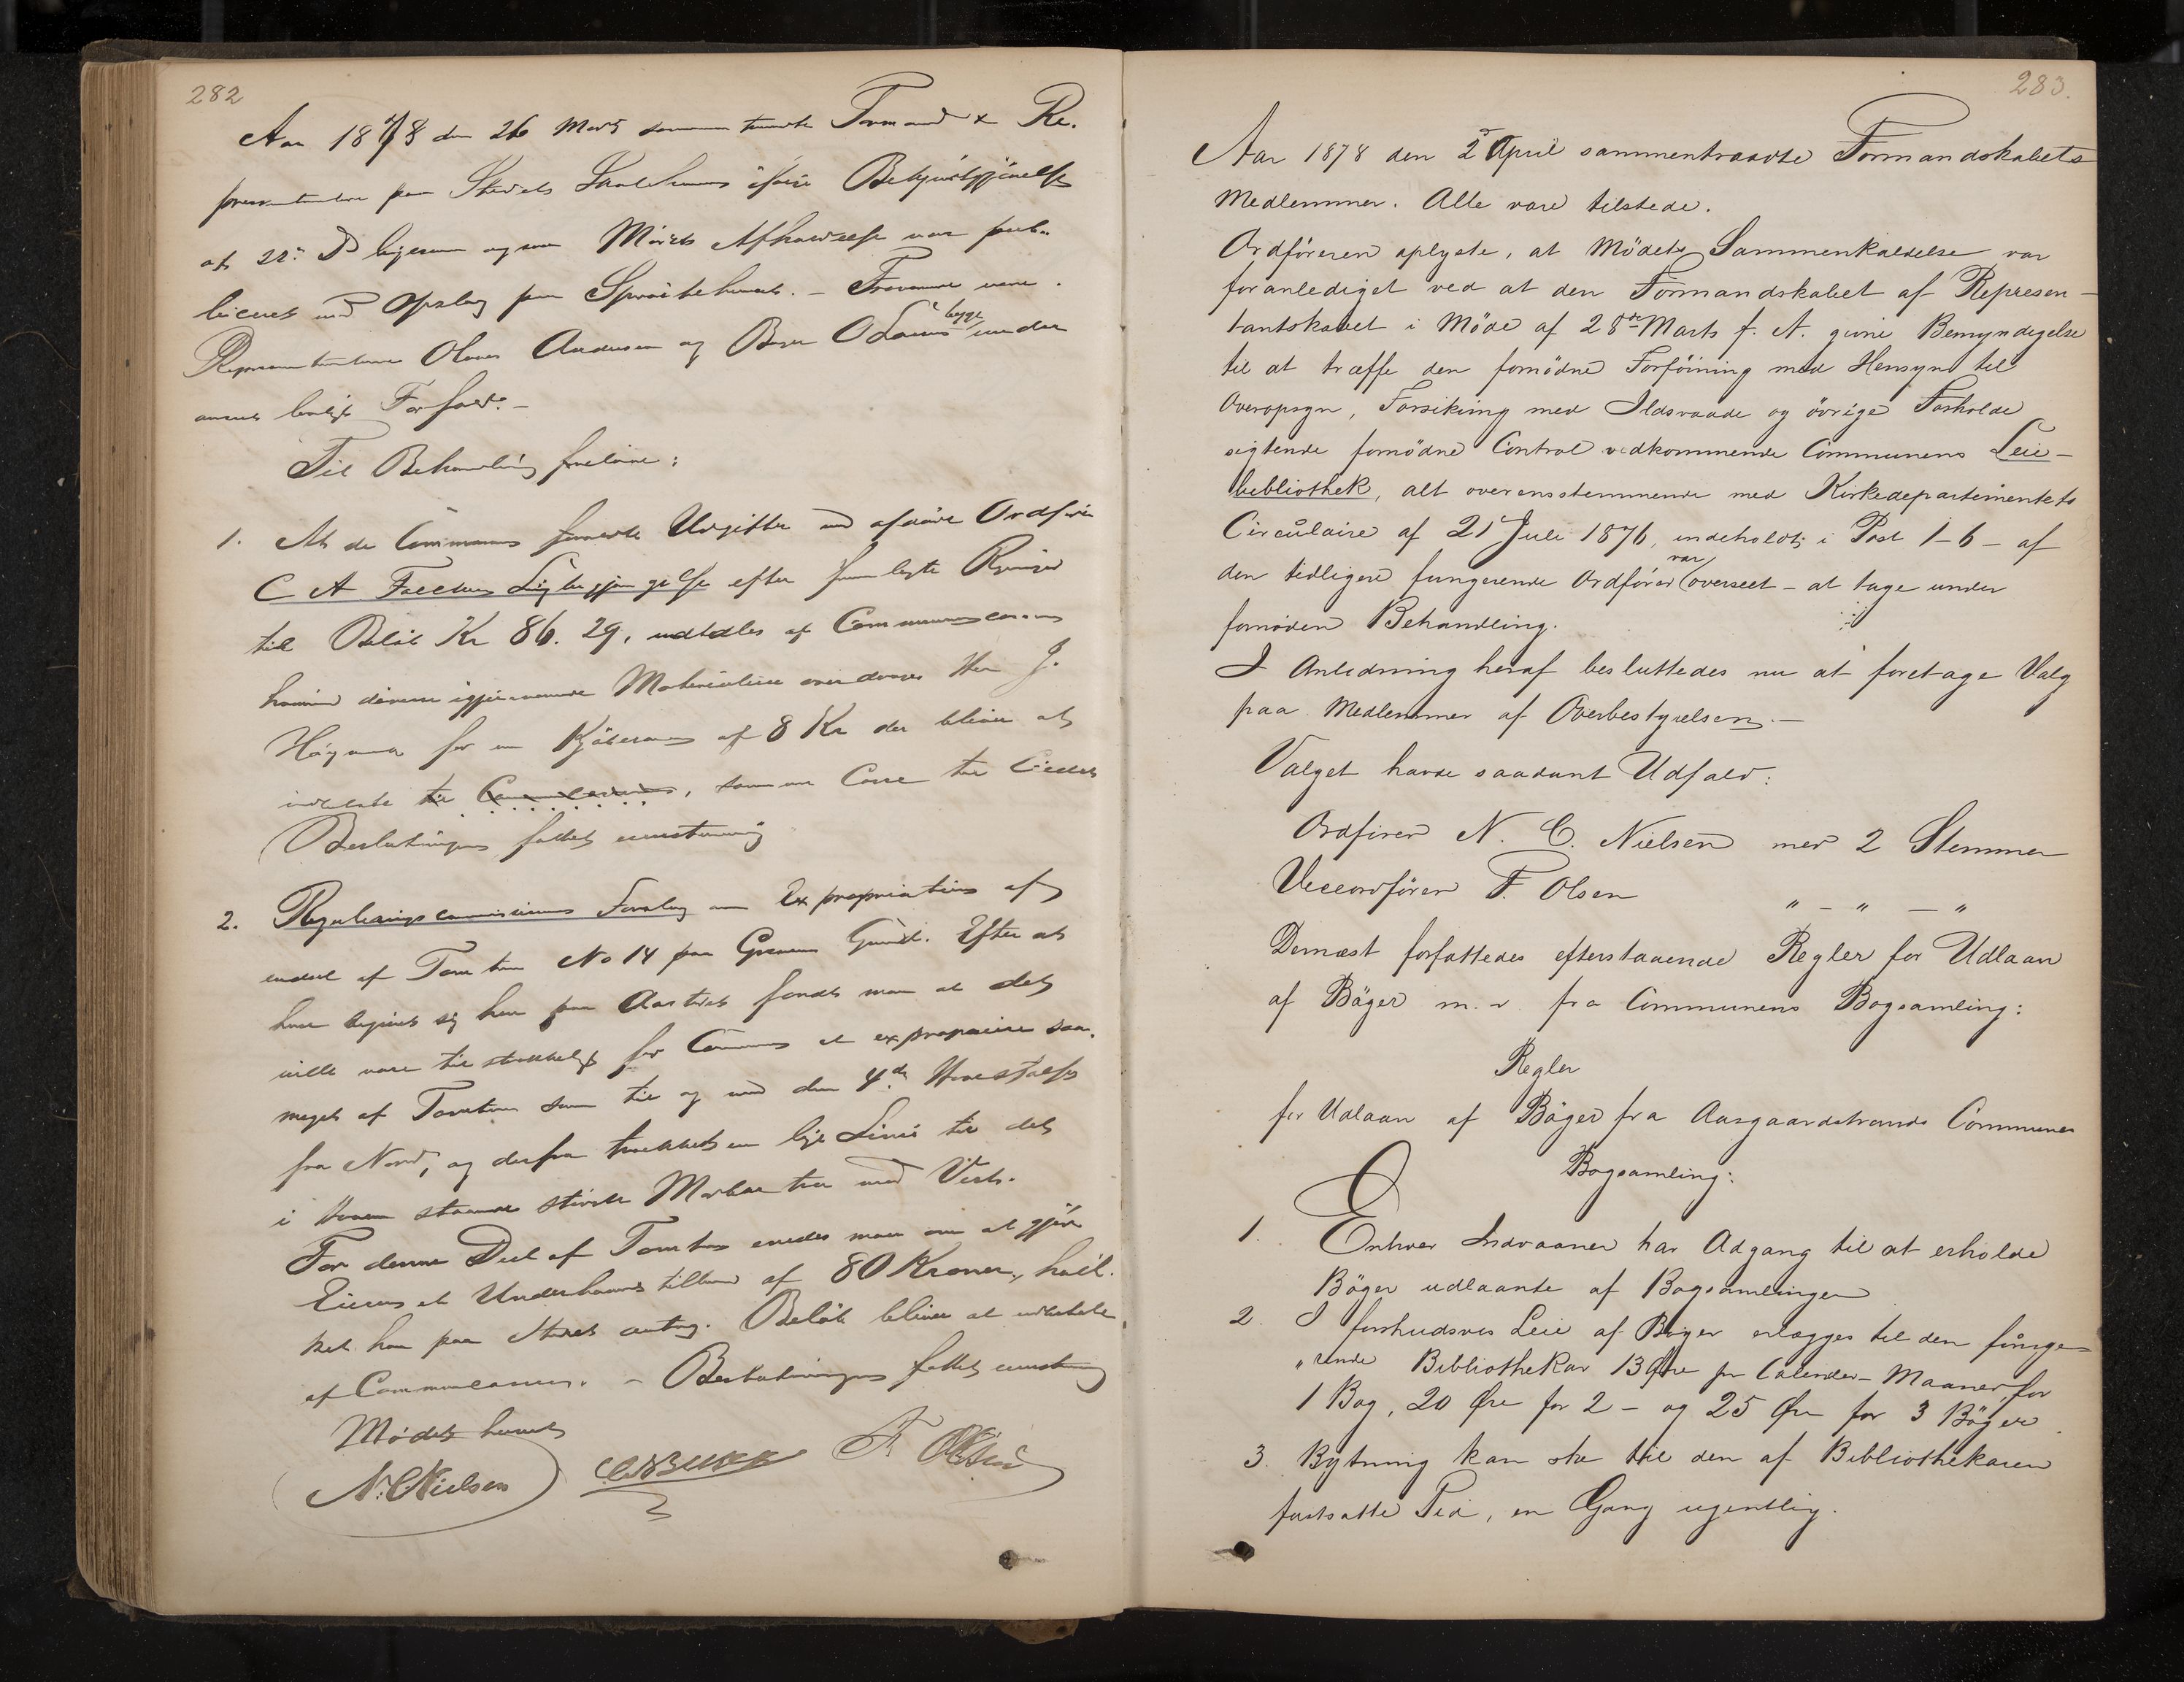 282
Aar 1878 den 26 Marts sammentraadte Formand & Re-
præsentanter paa Stedets Bekjendtgjörelse
at 22. ds ligesom ogsaa Mödets Afholdelse var pub-
liceret ved Opslag paa Spröitehuset. - Fraværende vare
Repræsentanterne Olaus Andersen og begge under
anmeldt lovligt Forfald. -
Til Behandling forelaae:
1. At de Communen Udgifter ved afdöde Ordförer
C A Foccks Ligbegjængelse efter fremlagte Regninger
til Belöb Kr 86.29, udtdles af Communecassen
hvorimod diverse igjenværende Materialier overdrages Herr J.
for en Kjöbesum af 8 Kr der bliver at
indbetale til Communecassen, samme Casse til
Beslutningen fattet eenstemmig
2. Reguleringscommissionens Forslag om Expropriation af
endeel af Tomten No 14 paa Grund. Efter at
have begivet sig hen paa Aastedet fandt man at det
vilde være tilstrækkeligt for Communen at expropriere saa
meget af Tomten som til og med den 4de
fra Nord, og derfra trækkes en lige Linie til det
i Haven staaende störste Morbærtræ mod Vest.
For denne Deel af Tomten enedes man om at gjöre
Eieren et Underhaands tilbud af 80 Kroner, hvil-
ket han paa Stedet antog. Belöb bliver at udbetale
af Communecassen. - Beslutningen fattet eenstemmig
Mödet hævet
N. C. Nielsen F. Olsen
283.
Aar 1878 den 2 April sammentraadte Formandskabets
Medlemmer. Alle vare tilstede.
Ordföreren oplyste, at Mödets Sammenkaldelse var
foranlediget ved at den Formandskabet af Represen-
tantskabet i Möde af 28de Marts f. A. givne Bemyndigelse
til at træffe den fornödne Forföining med Hensyn til
Overopsyn, Forsikring mod Ildsvaade og övrige Forholde
sigtende fornödne Control vedkommende Communens Leie-
bibliothek, alt overensstemmende med Kirkedepartementets
Circulaire af 21 Juli 1876, indeholdt i Post 1-6 - af
den tidligere fungerende Ordförer var overseet - at tage under
fornöden Behandling.
I Anledning heraf besluttedes nu at foretage Valg
paa Medlemmer af Overbestyrelsen. -
Valget havde saadant Udfald:
Ordförer N. C. Nielsen med 2 Stemmer
Viceordförer F. Olsen " - " - "
Dernæst forfattedes efterstaaende Regler for Udlaan
af Böger m. v. fra Communens Bogsamling:
Regler
for Udlaan af Böger fra Aasgaardstrands Communes
Bogsamling:
1. Enhver Indvaaner har Adgang til at erholde
Böger udlaante af Bogsamlingen
2. I forskudsvis Leie af Böger erlægges til den funge-
"rende Bibliothekar 13 Øre pr Calender-Maaned for
1 Bog, 20 Øre for 2 - og 25 Øre for 3 Böger.
3. Bytning kan ske til den af Bibliothekaren
fastsatte Tid, en Gang ugentlig.